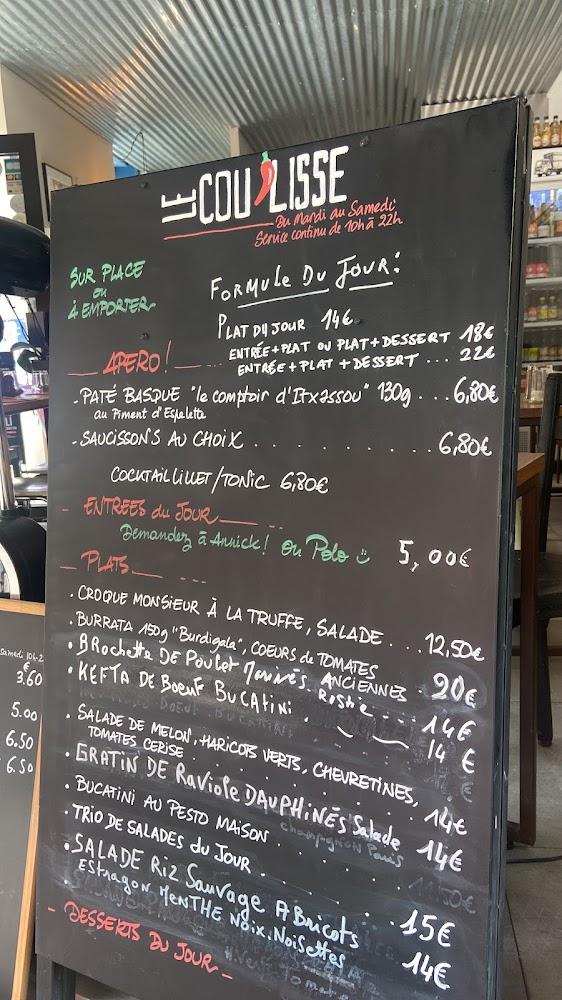 LE COULISSE
Du Mardi au Samedi
Service continu de 10h à 22h
SUR PLACE
ou
À EMPORTER
FORMULE DU JOUR:
PLAT DU JOUR 14€
ENTRÉE+PLAT OU PLAT+DESSERT 18€
ENTRÉE+PLAT+DESSERT ... 22€
APERO!
- PATÉ BASQUE "le comptoir d'Itxassou" 130g ... 6,80€
au Piment d'Espelette
- SAUCISSONS AU CHOIX ........ 6,80€
COCKTAIL LILLET/TONIC 6,80€
- ENTREES du JOUR
Demandez à Annick! ou Polo 5,00€
- PLATS
. CROQUE MONSIEUR À LA TRUFFE, SALADE ... 12,50€
. BURRATA 150g "Burdigala", COEURS de TOMATES
ANCIENNES . 20€
. BRochette DE Poulet Marinés. Rostie ... 14€
. KEFTA DE Boeuf BUCATINI . 14 €
. SALADE DE MELON, HARICOTS VERTS, CHEVRETINES,
TOMATES CERISE 14€
. GRATIN DE Raviole DAUPHINÉS Salade 14€
. BUCATINI AU PESTO MAISON
. TRIO DE SALADES du JOUR . . . . 15€
. SALADE Riz Sauvage ABricots
Estragon MENTHE NOix. Noisettes 14€
- DESSERTS DU JOUR -
Samedi 10h-2
€
3.60
5.00
6.50
6.50